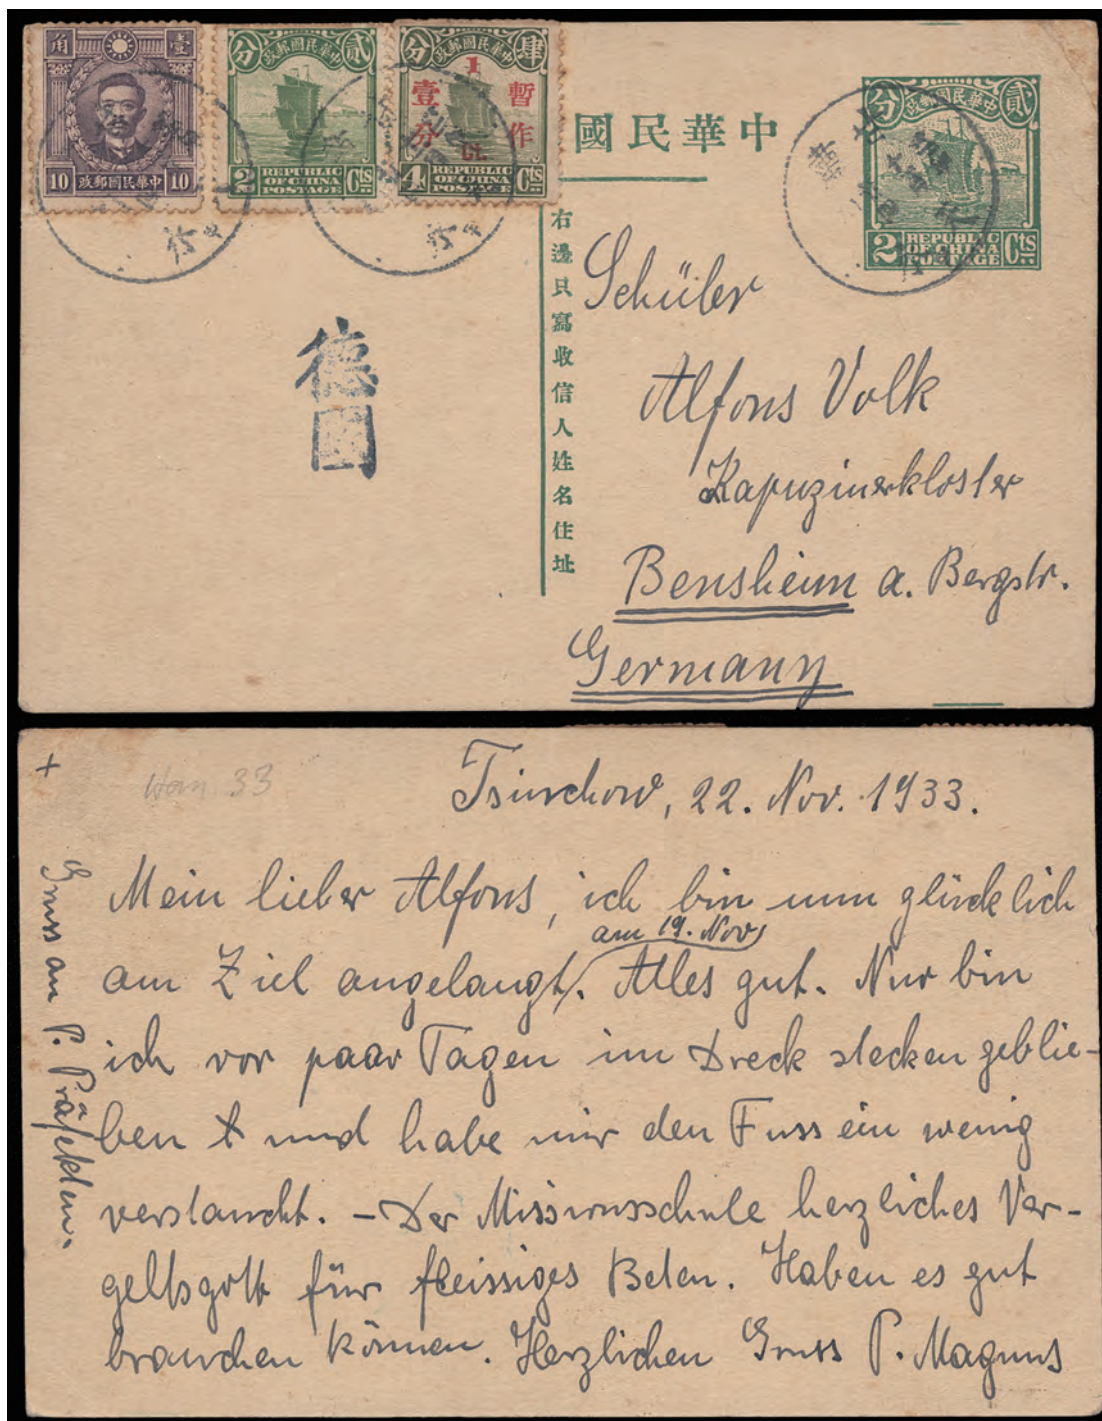 角 壹
10 政郵國民華中 10
分 貳
政郵國民華中
2 REPUBLIC OF CHINA POSTAGE Cts
分 肆
政郵國民華中
1
壹 暫
分 作
Ct.
4 REPUBLIC OF CHINA POSTAGE Cts
國民華中
分 貳
政郵國民華中
2 REPUBLIC OF CHINA POSTAGE Cts
右邊只寫收信人姓名住址
德國
Schüler
Alfons Volk
Kapuzinerkloster
Bensheim a. Bergstr.
Germany
+
33
Tsinchow, 22. Nov. 1933.
Mein lieber Alfons, ich bin nun glücklich
am 19. Nov
am Ziel angelangt. Alles gut. Nur bin
ich vor paar Tagen im Dreck stecken geblie-
ben und habe mir den Fuss ein wenig
verstaucht. – Der Missionsschule herzliches Ver-
geltsgott für fleissiges Beten. Haben es gut
brauchen können. Herzlichen Gruss P. Magnus
Gruss an P. Präfekten.